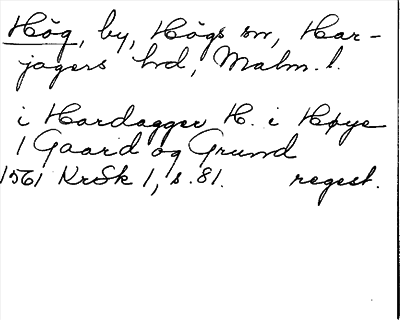 Hög, by, Högs sn, Har-
jagers hd, Malm. l.
i Hardagger H. i Høye
1 Gaard og Grund
1561 KrSk 1, s. 81. regest.